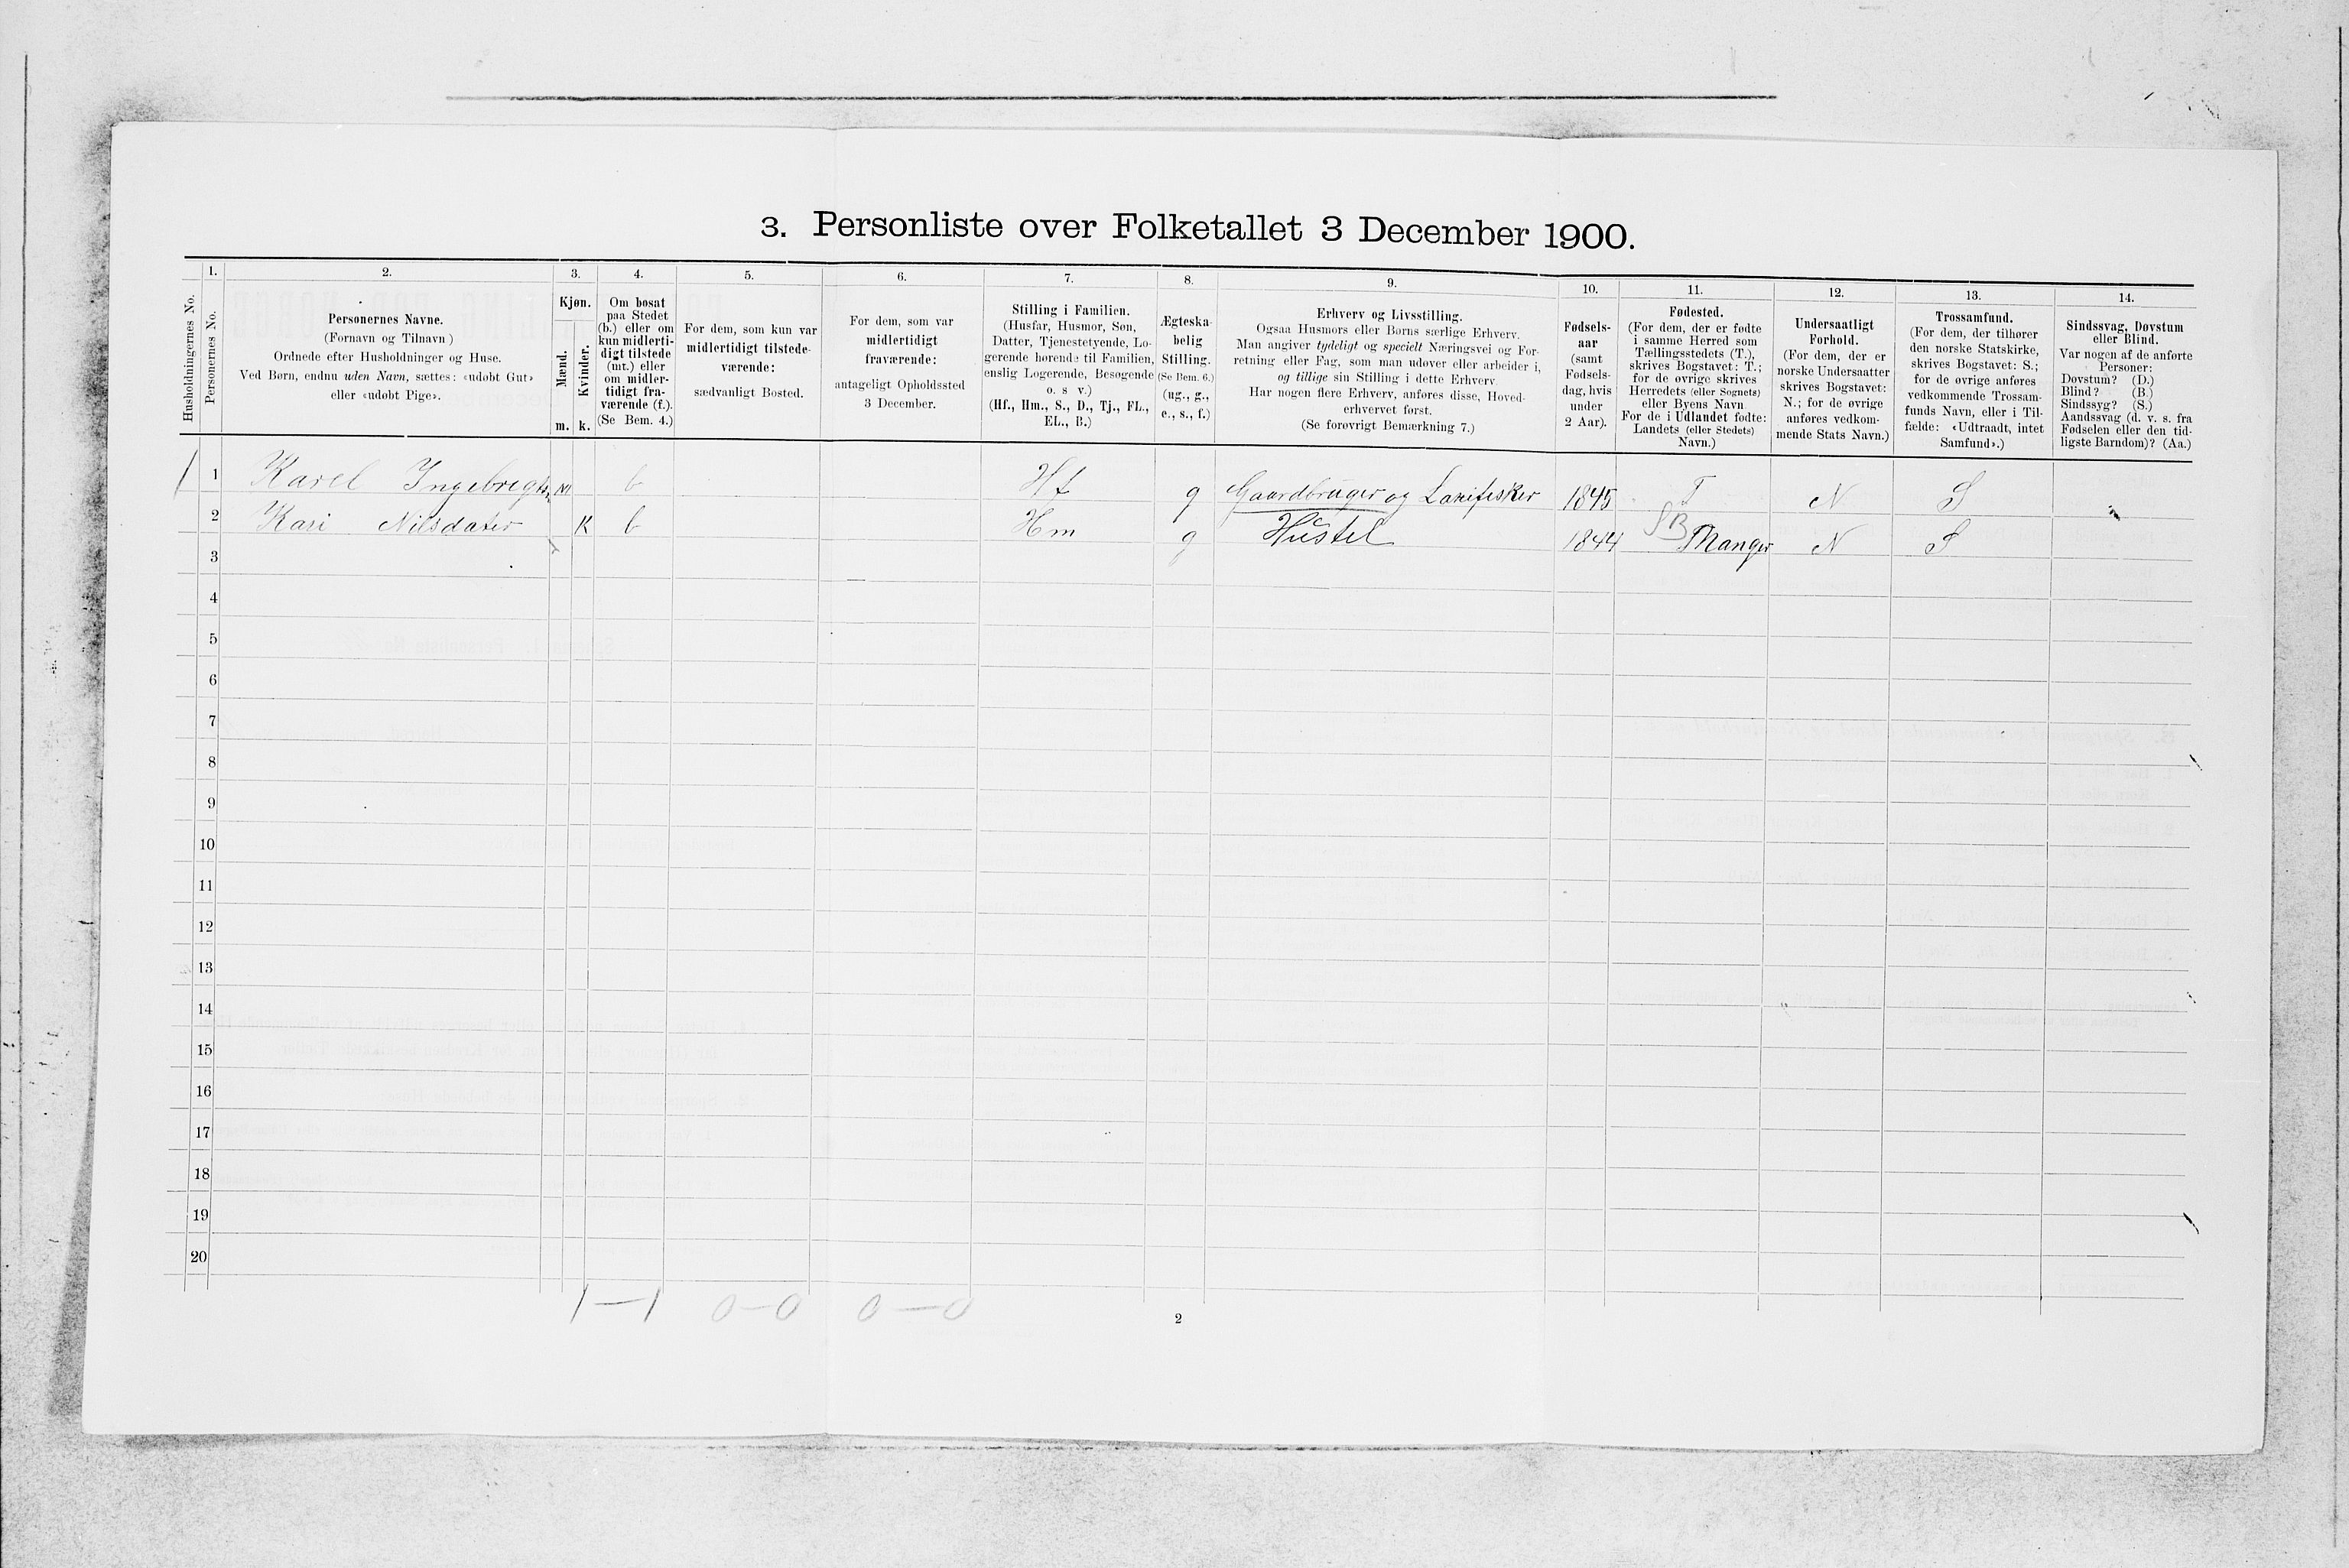 3. Personliste over Folketallet 3 December 1900.
Husholdningernes No.
1.
Personernes No.
2.
Personernes Navne.
(Fornavn og Tilnavn )
Ordnede efter Husholdninger og Huse.
Ved Børn, endnu uden Navn, sættes: «udøbt Gut»
eller «udøbt Pige».
3.
Kjøn.
Mænd.
Kvinder.
m. k.
4.
Om bosat
paa Stedet
(b.) eller om
kun midlerti-
digt tilstede
(mt.) eller
om midler-
tidigt fra-
værende (f.).
(Se Bem. 4.)
5.
For dem, som kun var
midlertidigt tilstede-
værende:
sædvanligt Bosted.
6.
For dem, som var
midlertidigt
fraværende:
antageligt Opholdssted
3 December.
7.
Stilling i Familien.
(Husfar, Husmor, Søn,
Datter, Tjenestetyende, Lo-
gerende hørende til Familien,
enslig Logerende, Besøgende
o. s v.)
(Hf., Hm., S., D., Tj., FL.,
EL., B.)
8.
Ægteska-
belig
Stilling.
(Se Bem. 6.)
(ug., g.,
e., s., f.)
9.
Erhverv og Livsstilling.
Ogsaa Husmors eller Børns særlige Erhverv.
Man angiver tydeligt og specielt Næringsvei og For-
retning eller Fag, som man udøver eller arbeider i,
og tillige sin Stilling i dette Erhverv.
Har nogen flere Erhverv, anføres disse, Hoved-
erhvervet først.
(Se forøvrigt Bemærkning 7.)
10.
Fødsels-
aar
(samt
Fødsels-
dag, hvis
under
2 Aar).
11.
Fødested.
(For dem, der er fødte
i samme Herred som
Tællingsstedets (T.),
skrives Bogstavet: T.;
for de øvrige skrives
Herredets (eller Sognets)
eller Byens Navn
For de i Udlandet fødte:
Landets (eller Stedets)
Navn.)
12.
Undersaatligt
Forhold.
(For dem, der er
norske Undersaatter
skrives Bogstavet:
N.; for de øvrige
anføres vedkom-
mende Stats Navn.)
13.
Trossamfund.
(For dem, der tilhører
den norske Statskirke,
skrives Bogstavet: S.;
for de øvrige anføres
vedkommende Trossam-
funds Navn, eller i Til-
fælde: «Udtraadt, intet
Samfund».)
14.
Sindssvag, Døvstum
eller Blind.
Var nogen af de anførte
Personer:
Døvstum? (D.)
Blind? (B.)
Sindssyg? (S.)
Aandssvag (d. v. s. fra
Fødselen eller den tid-
ligste Barndom)? (Aa.)
1 1 Karel Ingebregts. m b Hf g Gaardbruger og 1845 T N S
2 Kari Nilsdater K b Hm g Hüstel 1844 Manger N S
3
4
5
6
7
8
9
10
11
12
13
14
15
16
17
18
19
20
1—1 0—0 0—0
2